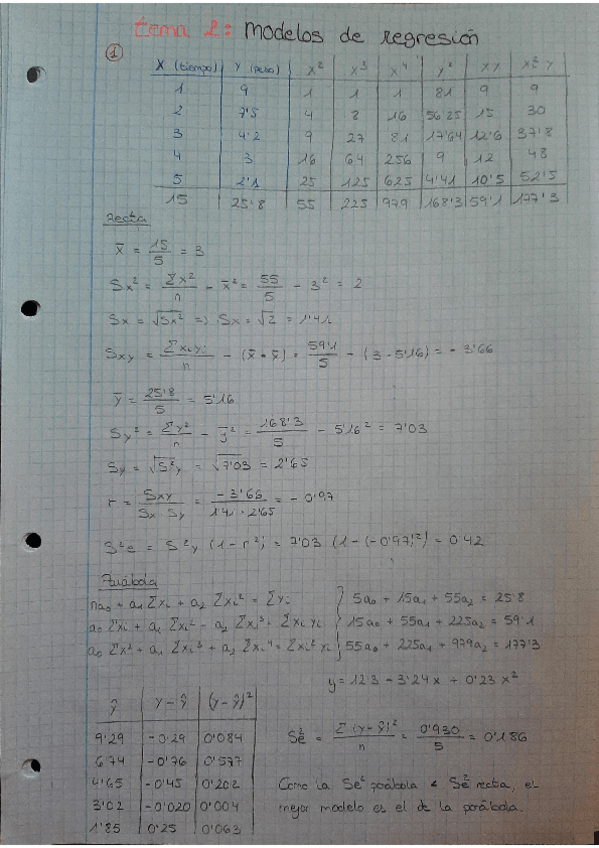 tema 2: Modelos de regresión
①
X (tiempo) Y (peso) x² x³ x⁴ y² xy x²y
1 9 1 1 1 81 9 9
2 7'5 4 8 16 56'25 15 30
3 4'2 9 27 81 17'64 12'6 37'8
4 3 16 64 256 9 12 48
5 2'1 25 125 625 4'41 10'5 52'5
15 25'8 55 225 979 168'3 59'1 177'3
Recta
x̄ = 15/5 = 3
Sx² = Σx²/n - x̄² = 55/5 - 3² = 2
Sx = √Sx² => Sx = √2 = 1'41
Sxy = Σxiyi/n - (x̄ · ȳ) = 59'1/5 - (3 · 5'16) = -3'66
ȳ = 25'8/5 = 5'16
Sy² = Σy²/n - ȳ² = 168'3/5 - 5'16² = 7'03
Sy = √S²y = √7'03 = 2'65
r = Sxy/Sx Sy = -3'66/1'41 · 2'65 = -0'97
S²e = S²y (1 - r²) = 7'03 (1 - (-0'97)²) = 0'42
Parábola
na₀ + a₁ Σxi + a₂ Σxi² = Σyi } 5a₀ + 15a₁ + 55a₂ = 25'8
a₀ Σxi + a₁ Σxi² + a₂ Σxi³ = Σxi yi } 15a₀ + 55a₁ + 225a₂ = 59'1
a₀ Σx² + a₁ Σxi³ + a₂ Σxi⁴ = Σxi² yi } 55a₀ + 225a₁ + 979a₂ = 177'3
y = 12'3 - 3'24x + 0'23x²
ŷ y - ŷ (y - ŷ)²
9'29 -0'29 0'084
6'74 -0'76 0'577
4'65 -0'45 0'202
3'02 -0'020 0'004
1'85 0'25 0'063
Se² = Σ(y - ŷ)²/n = 0'930/5 = 0'186
Como la Se² parábola < Se² recta, el
mejor modelo es el de la parábola.